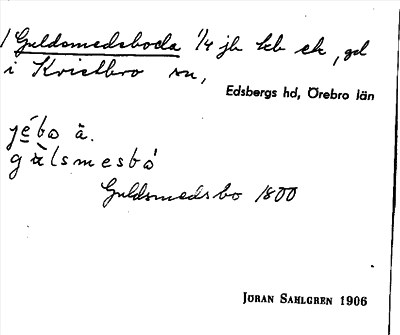 Guldsmedsboda 1/4 jb kb sk, gd
i Kvistbro sn,
Edsbergs hd, Örebro län
jébo ä.
gùlsmesbó
Guldsmedsbo 1800
JÖRAN SAHLGREN 1906